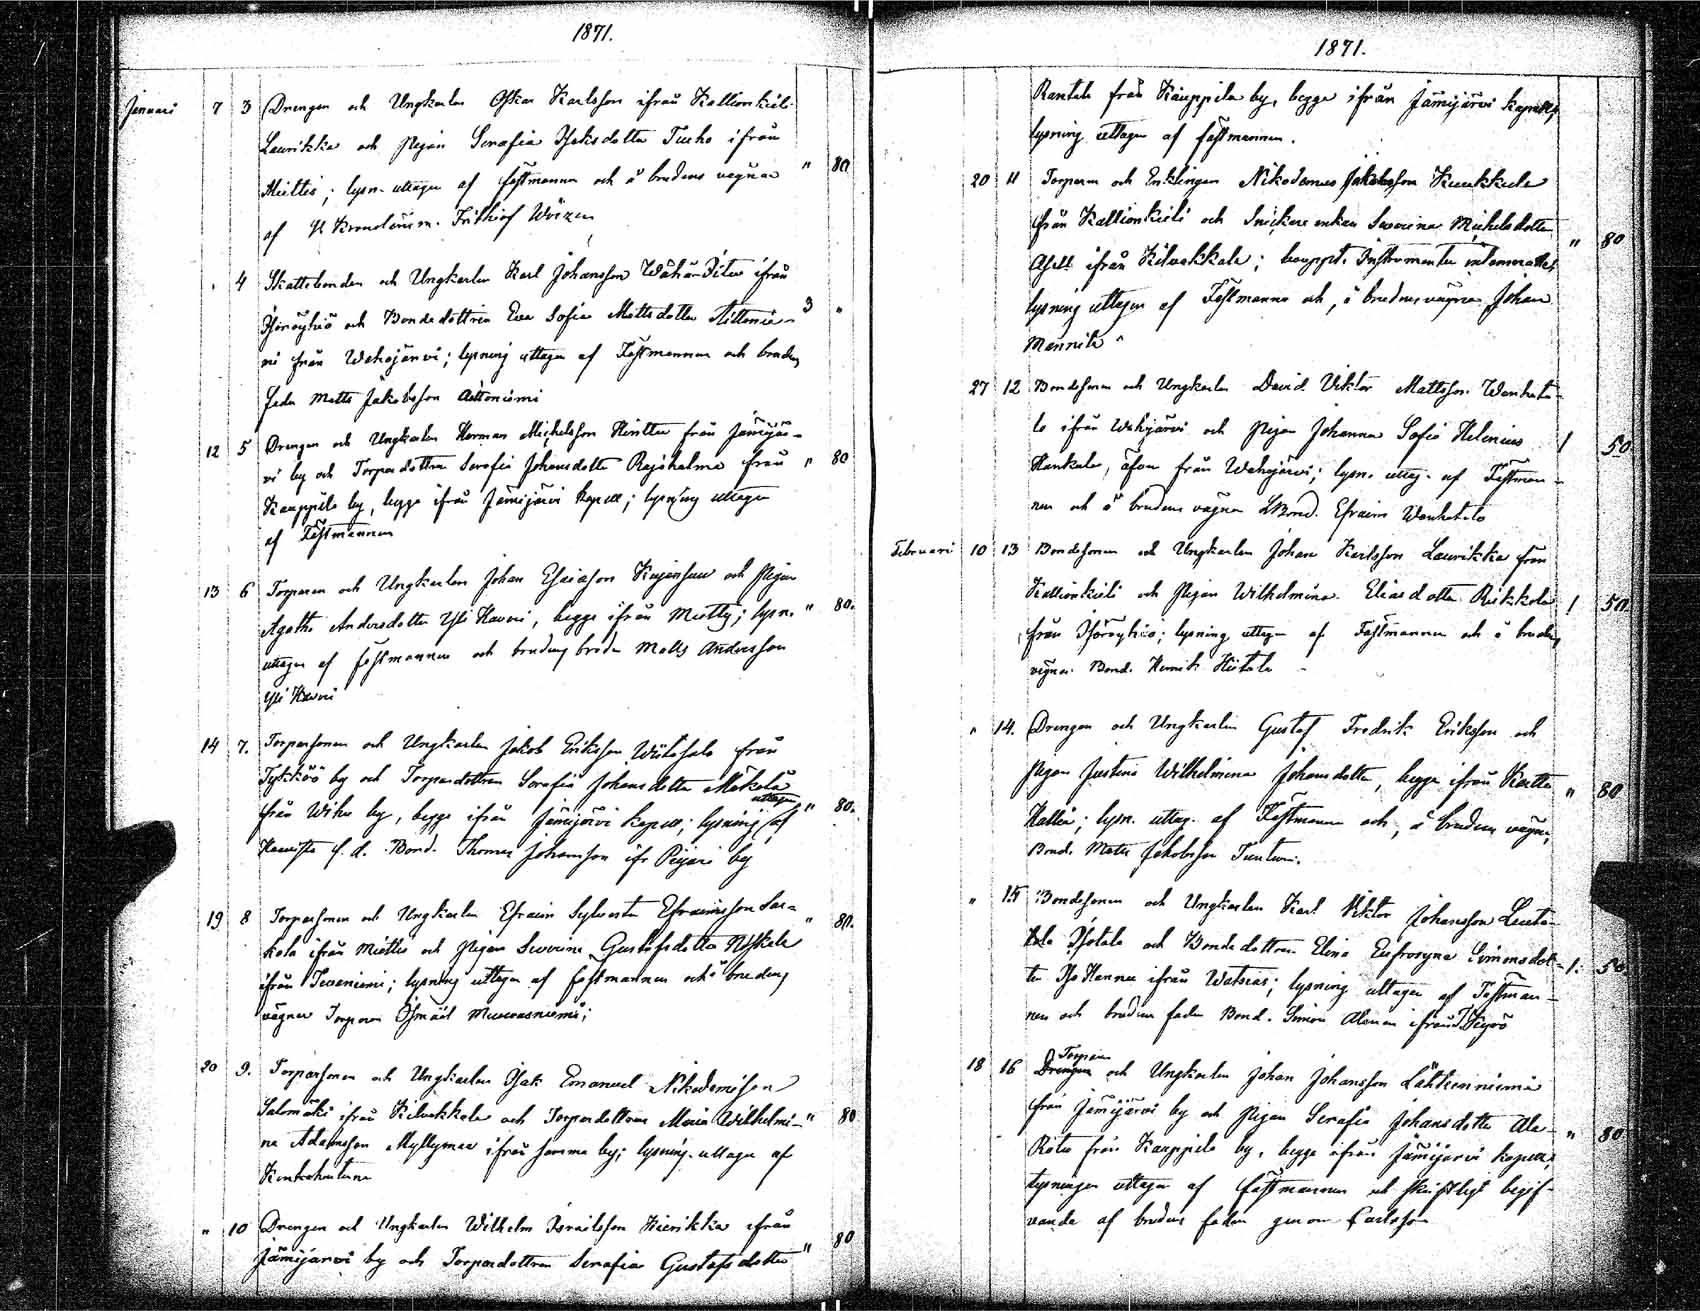 1871.
Januari 7 3 Drengen och Ungkarlen Oskar Karlsson ifrån Kallionkieli
Laurikka och Pigan Serafia Isaksdotter Tucho ifrån
Miettis; lysn. uttagen af fästmannen och å brudens vägnar " 80
af Kronolänsm. Frithiof
4 Skattebonden och Ungkarlen Karl Johansson Wähä ifrån
och Bondedottren Eva Sofia Mattsdotter Aittonie- 3 "
mi från Wehajärvi; lysning uttagen af Fästmannen och brudens
fader Matts Jakobsson Aittoniemi
12 5 Drengen och Ungkarlen Herman Michelsson från Jämijär-
vi by och Torparedottren Serafia Johansdotter Rajahalme från " 80
Kauppila by, begge ifrån Jämijärvi kapell; lysning uttagen
af Fästmannen
13 6 Torparen och Ungkarlen Johan Esaiasson och Pigan
Agatha Andersdotter Yli Kauri, begge ifrån Miettis; lysn. " 80.
uttagen af fästmannen och brudens broder Matts Andersson
Yli Kauri
14 7. Torparsonen och Ungkarlen Jakob Eriksson Wiitasalo från
Tykköö by och Torparedottren Serafia Johansdotter Mäkelä
uttagen
från Wihu by, begge ifrån Jämijärvi kapell; lysning af " 80.
f. d. Bond. Thomas Johansson ifr. Pejari by
19 8 Torparsonen och Ungkarlen Efraim Sylvester Efraimsson Sar-
kola ifrån Miettis och Pigan Severina Gustafsdotter " 80.
ifrån Teveniemi; lysning uttagen af fästmannen och å brudens
vägnar Torparen Ismäel
20 9. Torparsonen och Ungkarlen Isak Emanuel Nikodemisson
Salomäki ifrån Kilvakkala och Torparedottren Maria Wilhelmi- " 80
na Adamsson Myllymaa ifrån samma by; lysning uttagen af
Kontrahenterna
" 10 Drengen och Ungkarlen Wilhelm Israelsson ifrån
Jämijärvi by och Torparedottren Serafia Gustafsdotter " 80
1871.
från Kauppila by, begge ifrån Jämijärvi kapell,
lysning uttagen af fästmannen.
20 11 Torparen och Enklingen Nikodemus Jakobsson
från Kallionkieli och Snickare enkan Severina Michelsdotter " 80
ifrån Kilvakkala; Instrumenter
lysning uttagen af Fästmannen och, å brudens vägnar Johan
Mannila
27 12 Bondesonen och Ungkarlen David Viktor Mattsson Wanhata-
lo ifrån Wehajärvi och Pigan Johanna Sofia Helenius 1 50
Hankala, äfven från Wehajärvi; lysn. uttag. af Fästman-
nen och å brudens vägnar Bond. Efraim Wanhatalo
Februari 10 13 Bondesonen och Ungkarlen Johan Karlsson Laurikka från
Kallionkieli och Pigan Wilhelmina Eliasdotter Riikkola 1 50.
från; lysning uttagen af Fästmannen och å brudens
vägnar Bond. Henrik Hietala
" 14. Drengen och Ungkarlen Gustaf Fredrik Eriksson och
Pigan Justina Wilhelmina Johansdotter, begge ifrån " 80
lysn. uttag. af Fästmannen och, å brudens vägnar,
Bond. Matts Jakobsson Tuuturi.
" 15 Bondesonen och Ungkarlen Karl Viktor Johansson
och Bondedottren Elina Eufrosyna Simonsdot- 1: 50.
ter Iso Hannu ifrån; lysning uttagen af Fästman-
nen och brudens fader Bond. Simon ifrån
Torparen
18 16 Drengen och Ungkarlen Johan Johansson Lähteenniemi
från Jämijärvi by och Pigan Serafia Johansdotter Ala- " 80.
från Kauppila by, begge ifrån Jämijärvi kapell;
lysningen uttagen af fästmannen och skriftligt begif-
vande af brudens fader genom Carlsson